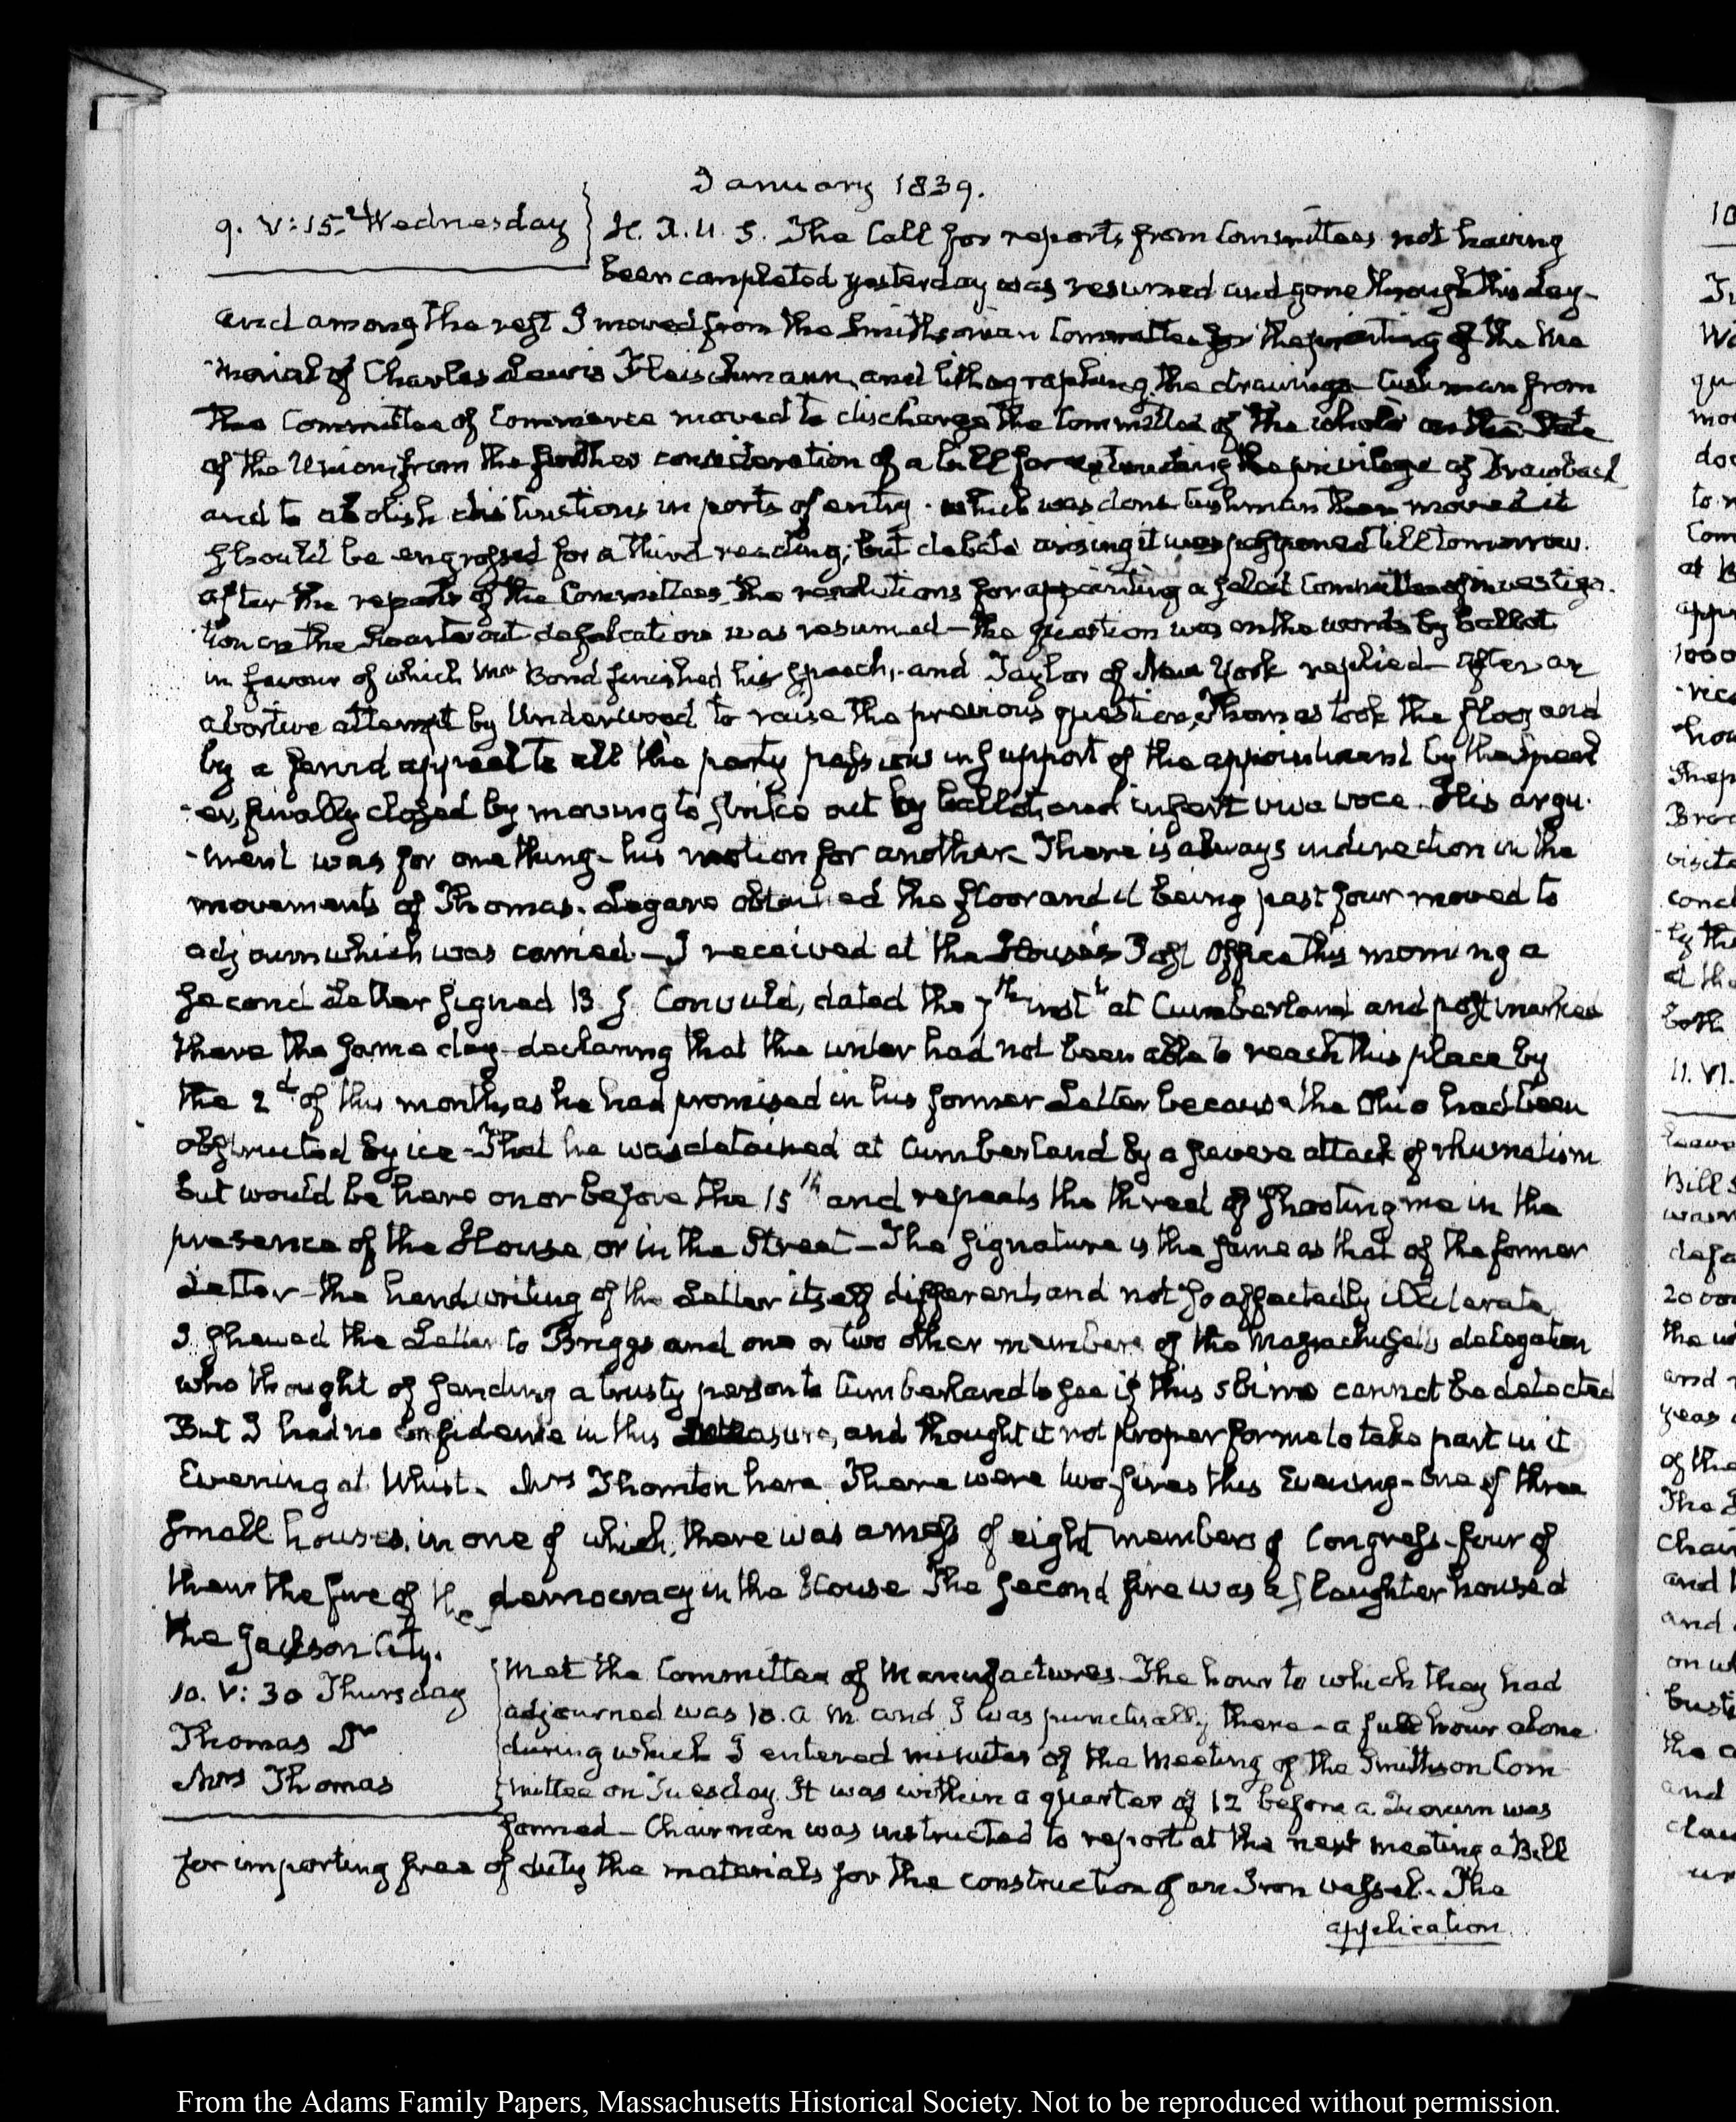 January 1839.
9. V:15. Wednesday
H. R. U. S. The Call for reports from Committees not having
been completed yesterday was resumed and gone through this day-
and among the rest I moved from the Smithsonian Committee for the printing of the Me
-morial of Charles Lewis Fleischmann, and lithographing the drawings- Cushman from
the Committee of Commerce moved to discharge the Committee of the whole on the State
of the Union, from the further consideration of a bill for extending the privilege of Drawback
and to abolish distinctions in ports of entry. which was done Cushman then moved it
should be engrossed for a third reading; but debate arising it was postponed till tomorrow.
after the reports of the Committees, the resolutions for appointing a select Committee of investiga-
tion on the Swartwout defalcations was resumed- the question was on the words by ballot
in favour of which Mr Bond finished his speech, and Taylor of New York replied- after an
abortive attempt by Underwood to raise the previous question, Thomas took the floor and
by a fervid appeal to all the party passions in support of the appointment by the Speak
-er, finally closed by moving to strike out by ballot, and insert viva voce. His argu-
-ment was for one thing- his motion for another. There is always indirection in the
movements of Thomas. Legare obtained the floor and it being past four moved to
adjourn which was carried.- I received at the House's Post Office this morning a
second Letter signed B. J. Conuuld, dated the 7th instt at Cumberland and postmarked
there the same day- declaring that the writer had not been able to reach this place by
the 2d of this month, as he had promised in his former Letter because the Ohio had been
obstructed by ice- That he was detained at Cumberland by a severe attack of rhumatism
but would be here on or before the 15th and repeats the threat of shooting me in the
presence of the House, or in the Street- The signature is the same as that of the former
Letter- the handwriting of the Letter itself different, and not so affectedly illiterate.
I shewed the Letter to Briggs and one or two other members of the Massachusetts delegation
who thought of sending a trusty person to Cumberland to see if this cannot be detected
But I had no confidence in this measure, and thought it not proper for me to take part in it
Evening at Whist. Mrs Thornton here. There were two fires this Evening- One of three
small houses, in one of which, there was a mess of eight members of Congress- four of
them the five of the democracy in the House The second fire was a slaughter house at
the Jackson City.
10. V:30 Thursday
Thomas Dr
Mrs Thomas
Met the Committee of Manufactures. The hour to which they had
adjourned was 10. A. M. and I was punctually there- a full hour alone
during which I entered minutes of the Meeting of the Smithson Com-
mittee on Tuesday. It was within a quarter of 12 before a Quorum was
formed- Chairman was instructed to report at the next meeting a Bill
for importing free of duty the materials for the construction of an Iron vessel. The
application
From the Adams Family Papers, Massachusetts Historical Society. Not to be reproduced without permission.